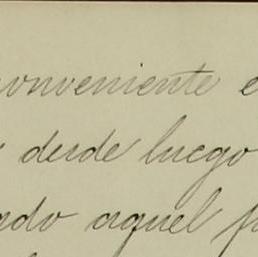 conveniente e
desde luego
ado aquel f